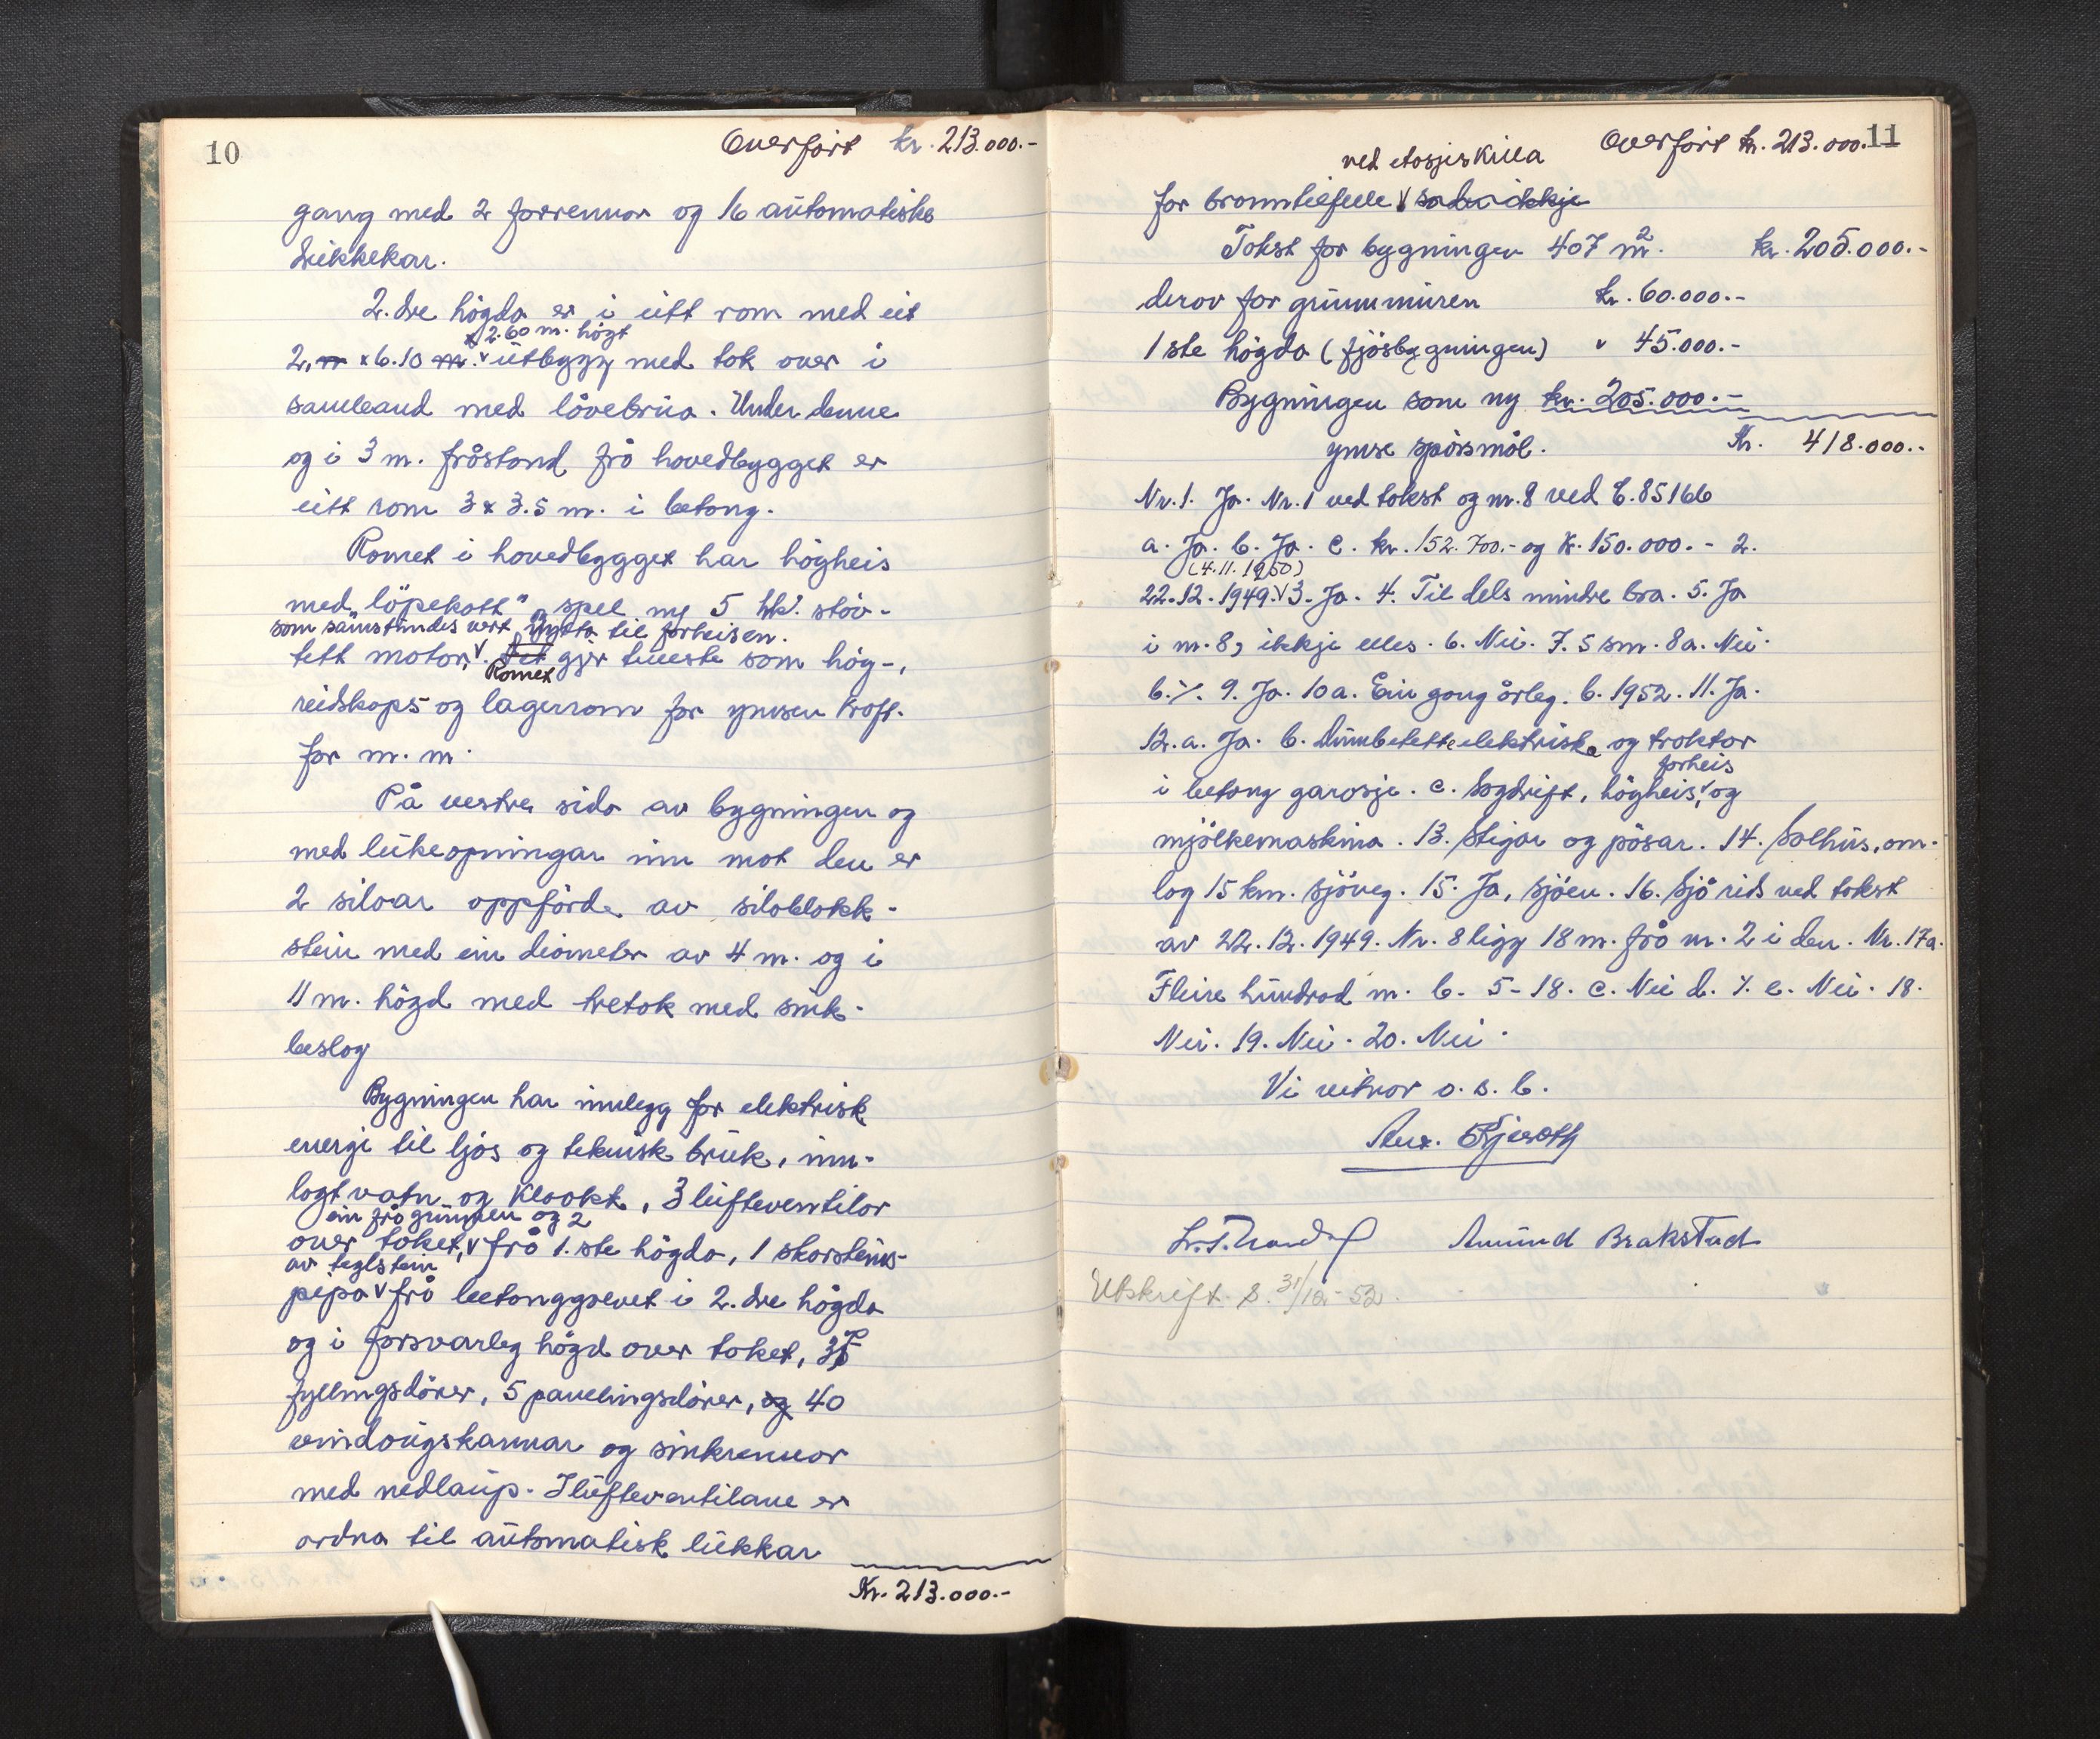 10
Overfört kr. 213.000.-
gang med 2 forrennor og 16 automatiske
drikkekar.
2. dre högda er i eitt rom med eit
x 2.60 m. högt
2,m x 6.10 m. v utbygg med tak over i
samband med låvebrua. Under denne
og i 3 m. fråstand frå hovedbygget er
eitt rom 3 x 3.5 m. i betong.
Romet i hovedbygget har högheis
med "löpekatt" spel og 5 hk. stöv-
som samstundes vert nytta til forheisen.
tett motor, v. Det gjer teneste som hög-,
Romet
reidskaps- og lagerrom for ymsen kraft-
for m. m.
På vestre sida av bygningen og
med lukeopningar inn mot den er
2 siloar oppförde av siloblokk-
stein med ein diameter av 4 m. og i
11 m. högd med tretak med sink-
beslag
Bygningen har innlegg for elektrisk
energi til ljos og teknisk bruk, inn-
lagt vatn og kloakk, 3 lufteventilar
ein frå grunnen og 2
over taket, v frå 1. ste högda, 1 skorsteins-
av teglstein
pipa v frå betonggolvet i 2. dre högda
og i forsvarleg högd over taket, 3
fyllingsdörer, 5 panelingsdörer, og 40
vindaugskarmar og sinkrennor
med nedlaup. I lufteventilane er
ordna til automatisk lukkar
Kr. 213.000.-
11
Overfört kr. 213.000.
ved etasjeskilla
for branntilfelle v
Takst for bygningen 407 m2. kr. 205.000.-
derav for grunnmuren kr. 60.000.-
1 ste högda (fjösbygningen) " 45.000.-
Bygningen som ny kr. 205.000.-
ymse spörsmål. Kr. 418.000.-
Nr. 1. Ja. Nr. 1 ved takst og nr. 8 ved L. 85166
a. Ja. b. Ja. c. kr. 152.700.- og k. 150.000.- 2.
(4.11.1950)
22.12.1949. v 3. Ja. 4. Til dels mindre bra. 5. Ja
i nr. 8, ikkje elles. 6. Nei. 7. 5 sm. 8a. Nei.
b. ٪. 9. Ja. 10a. Ein gong årleg. b. 1952. 11. Ja.
12. a. Ja. b. Dunbetette elektriske og traktor
forheis
i betong garasje. c. Sagdrift, högheis, v og
mjölkemaskina. 13. Stigar og pösar. 14. Solhus, om-
lag 15 km. sjöveg. 15. Ja, sjöen. 16. Sjå rids ved takst
av 22.12.1949. Nr. 8 ligg 18 m. frå nr. 2 i den. Nr. 17a.
Fleire hundrad m. b. 5-18. c. Nei d. ٪. e. Nei. 18.
Nei. 19. Nei. 20. Nei.
Vi vitnar o. s. b.
Amund Brakstad
Utskrift s. 31/10-52.